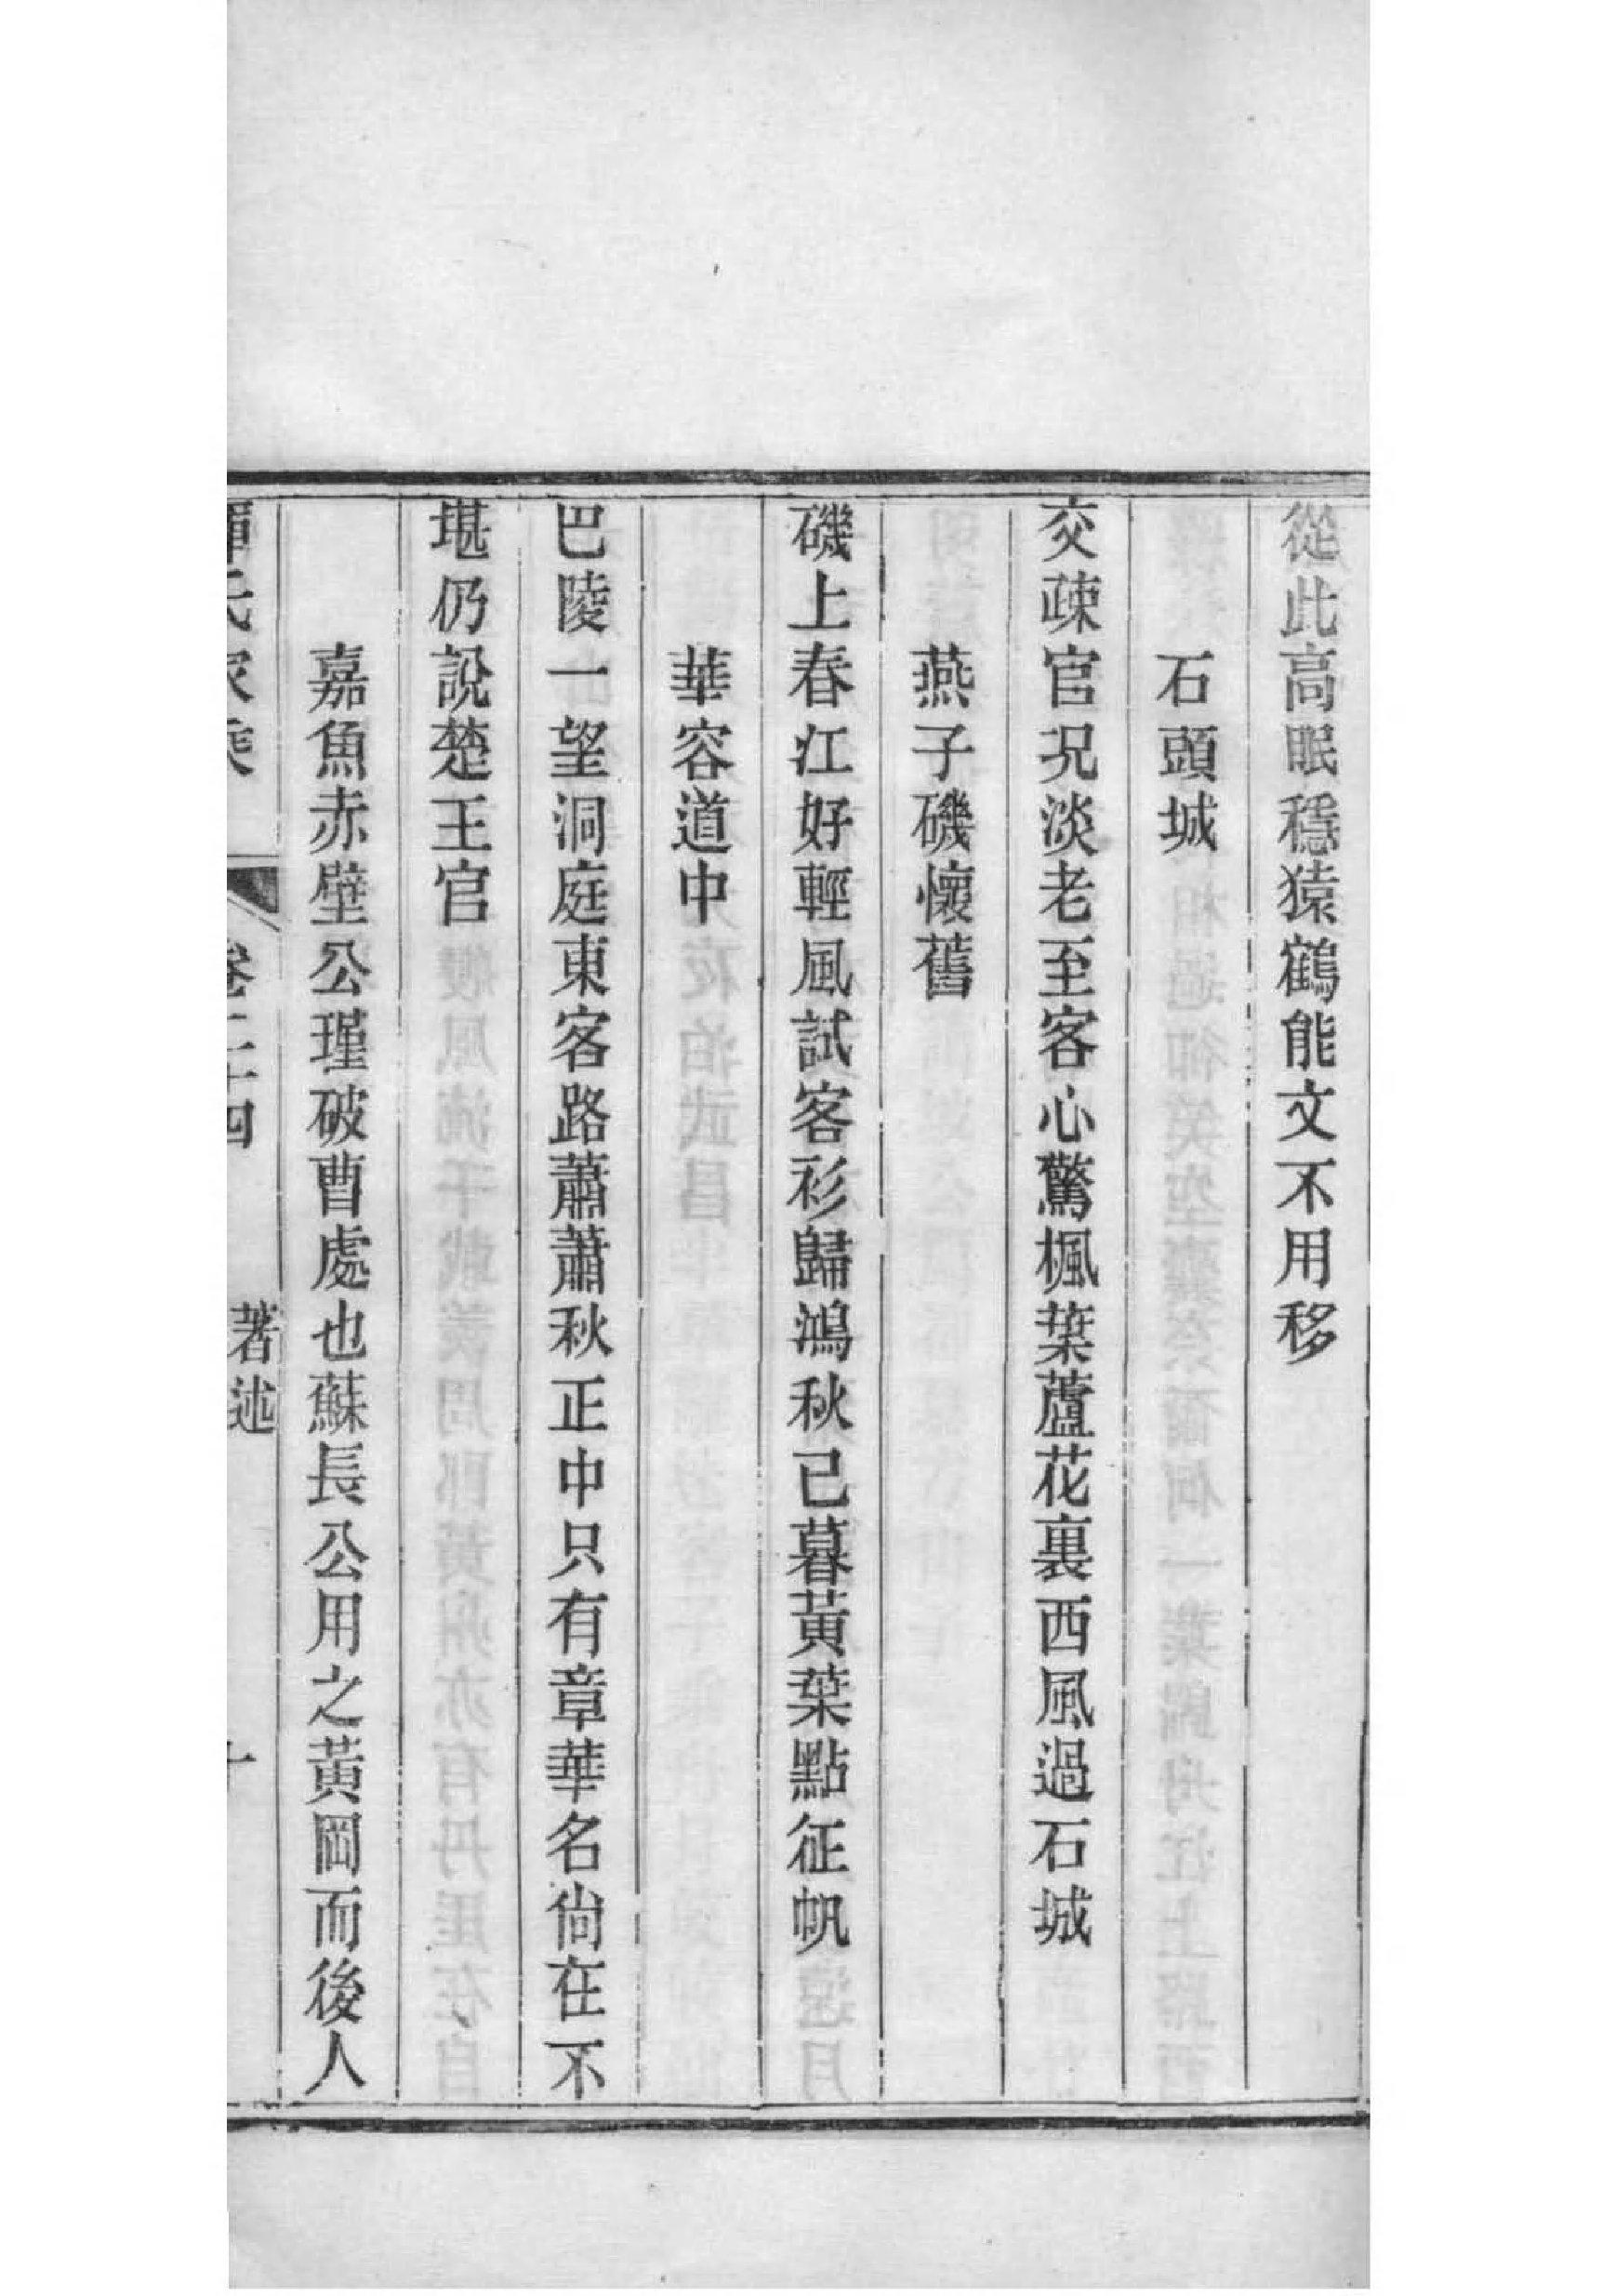 從此高眠穩猿鶴能文不用移
石頭城
交疎官況淡老至客心驚楓葉蘆花裏西風過石城
燕子磯懷舊
磯上春江好輕風試客衫歸鴻秋已暮黃葉點征帆
華容道中
巴陵一望洞庭東客路蕭蕭秋正中只有章華名尙在不
堪仍說楚王宮
嘉魚赤壁公瑾破曹處也蘇長公用之黃岡而後人
著述